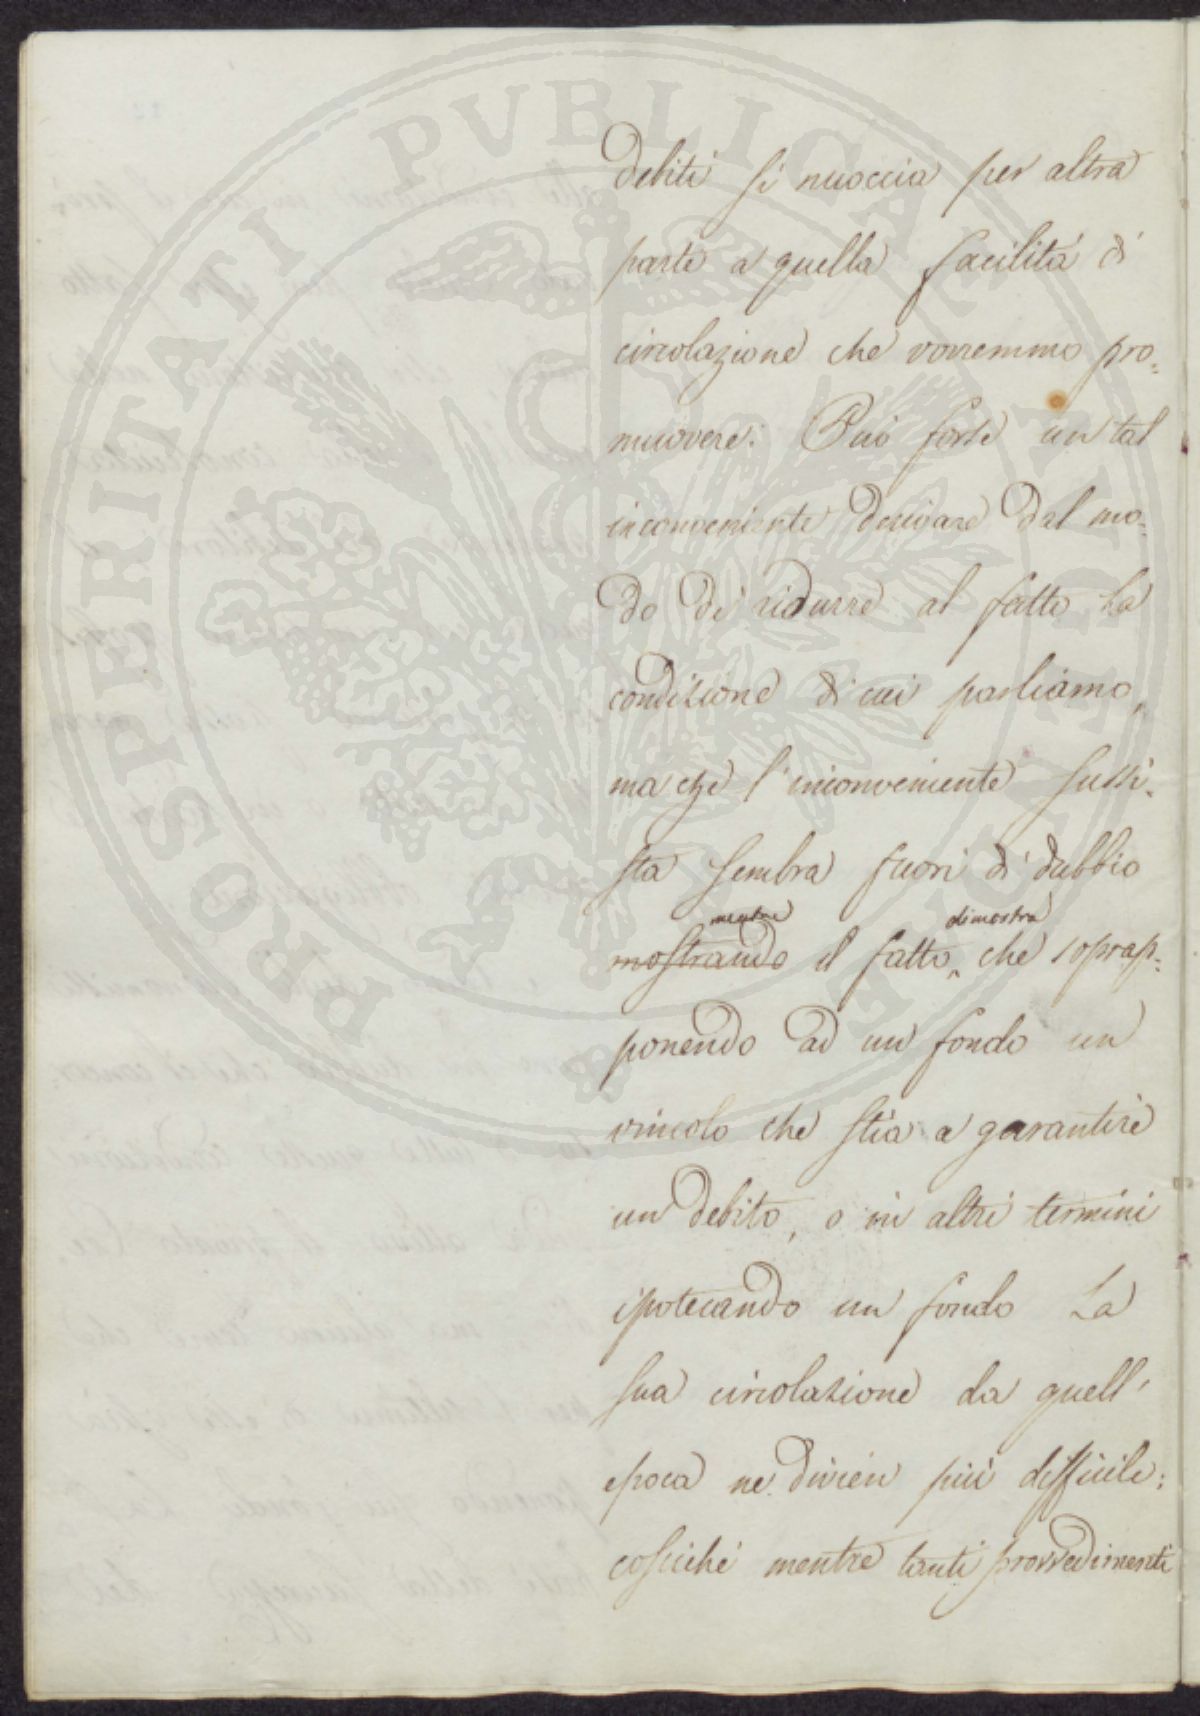 PROSPERITATI PUBLICAE AUGENDAE
debiti si nuoccia per altra
parte a quella facilità di
circolazione che vorremmo pro=
muovere. Può forse un tal
inconveniente derivare dal mo=
do di ridurre al fatto la
condizione di cui parliamo,
ma che l'inconveniente sussi=
sta sembra fuori di dubbio
mentre dimostra
mostrando il fatto ^ che soprap=
ponendo ad un fondo un
vincolo che stia a garantire
un debito, o in altri termini
ipotecando un fondo la
sua circolazione da quell'
epoca ne divien più difficile;
cosicché mentre tanti provvedimenti